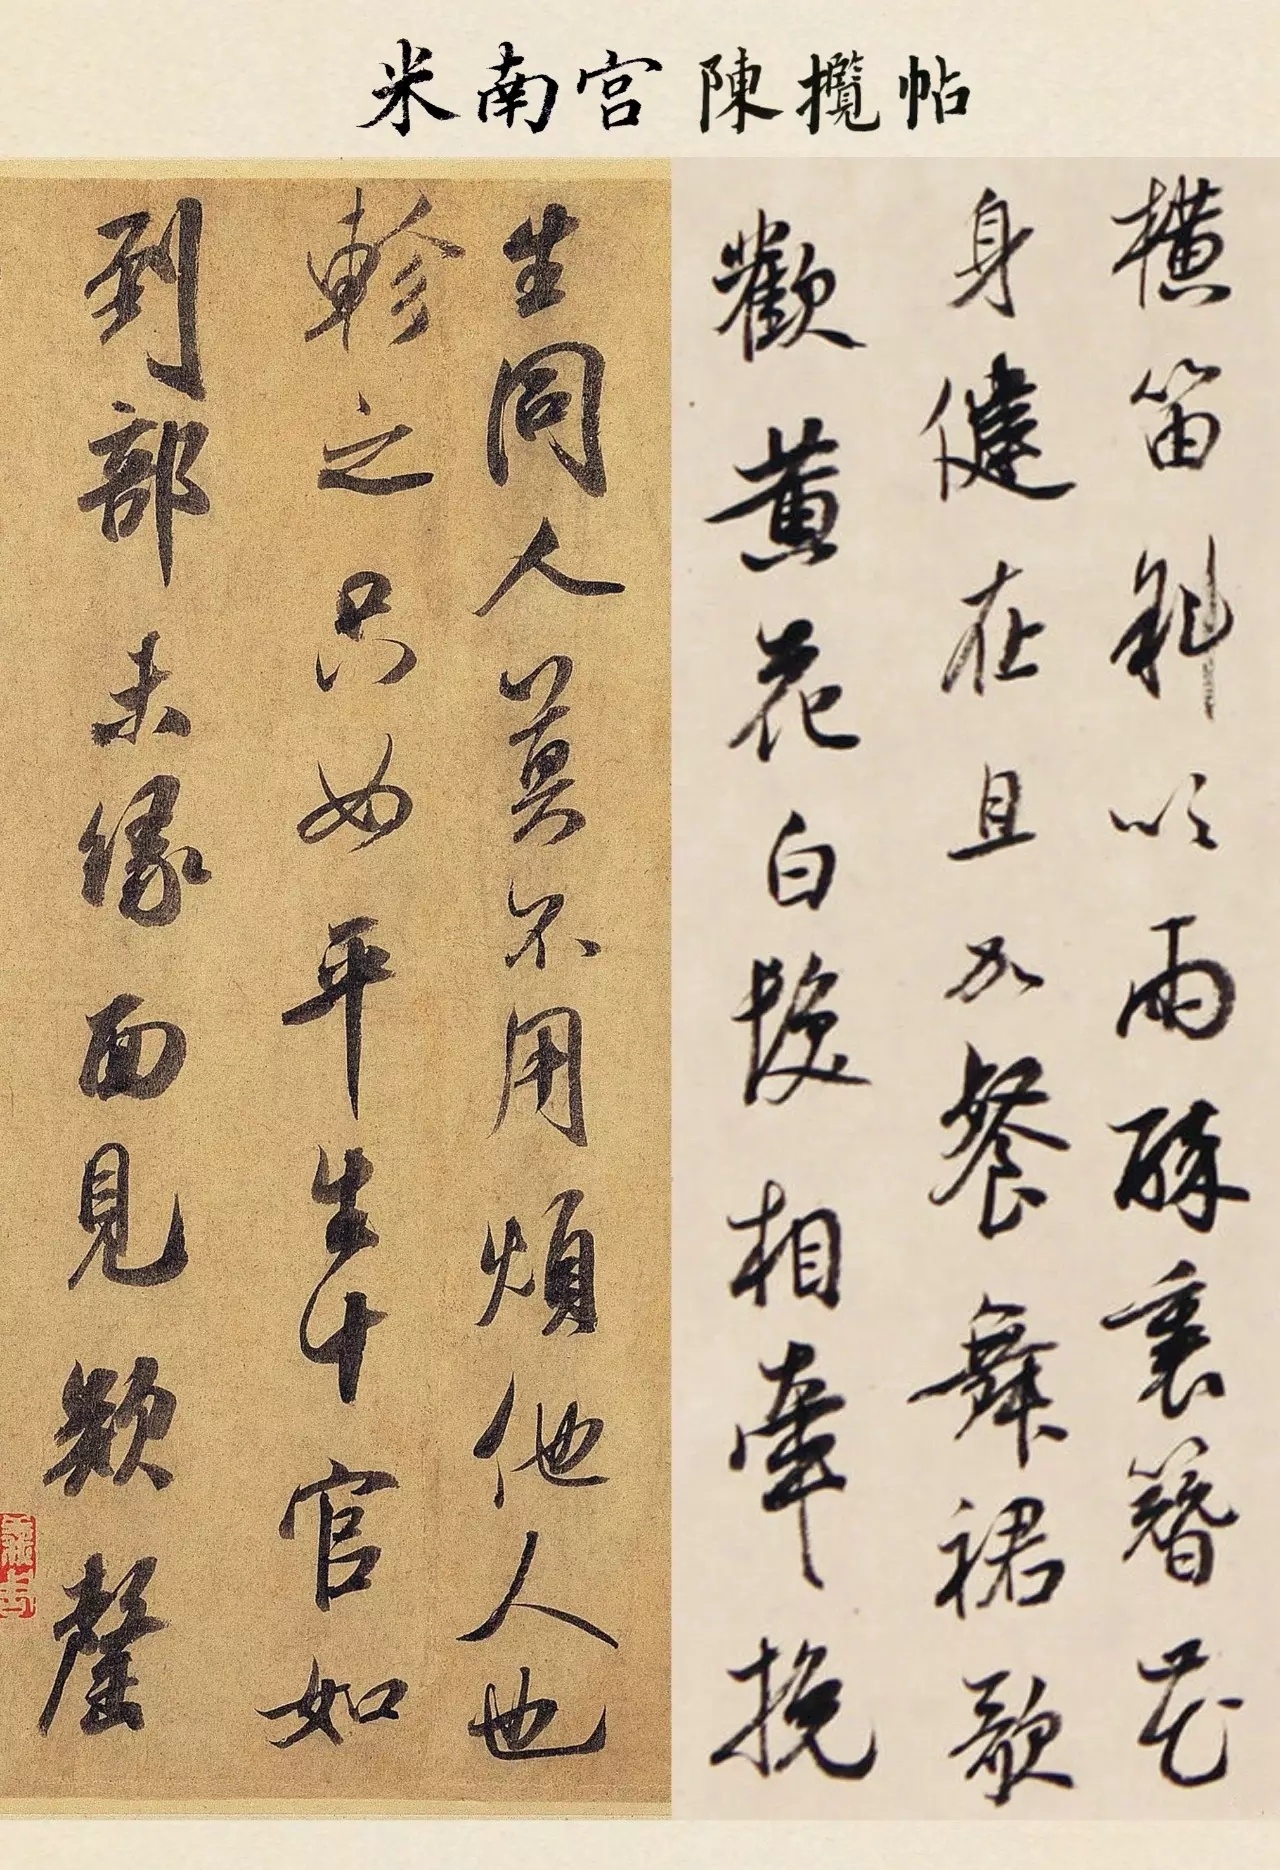 米南宮陳攬帖
橫笛斜吹雨醉裏簪花
身健在且加餐舞裙歌
歡黃花白髮相牽挽
生同人莫不用煩他人也
軫之只如平生十官如
到部未緣面見欵罄